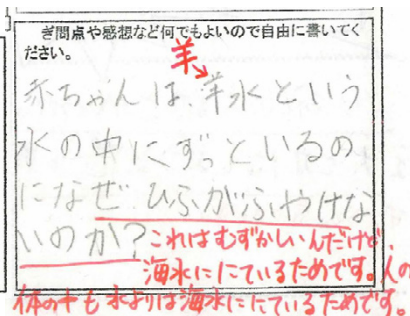 ぎ問点や感想など何でもよいので自由に書いてく
ださい。
羊
赤ちゃんは、羊水という
水の中にずっといるの
になぜひふがふやけな
いのか？
これはむずかしいんだけど、
海水ににているためです。人の
体の中も水よりは海水ににているためです。